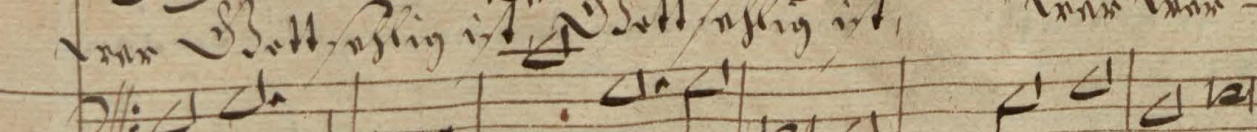 wer Gottsehlig ist, Gottsehlig ist, wer wer